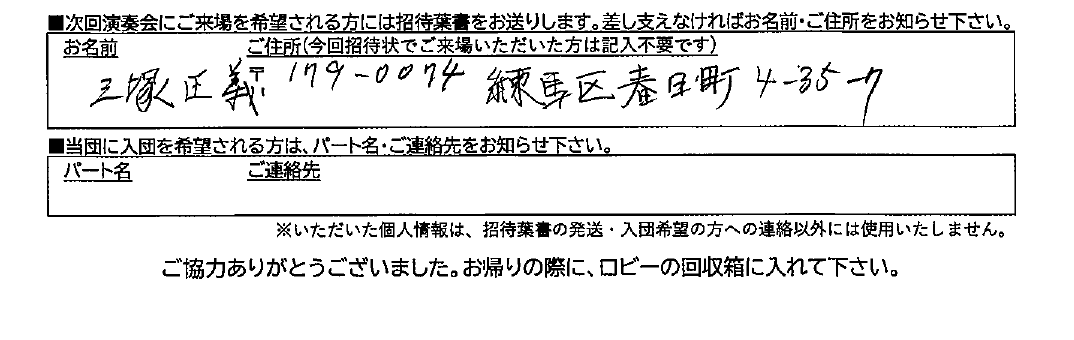 ■次回演奏会にご来場を希望される方には招待葉書をお送りします。差し支えなければお名前・ご住所をお知らせ下さい。
お名前 ご住所(今回招待状でご来場いただいた方は記入不要です)
三塚正義 〒179-0074 練馬区春日町4-35-7
■当団に入団を希望される方は、パート名・ご連絡先をお知らせ下さい。
パート名 ご連絡先
※いただいた個人情報は、招待葉書の発送・入団希望の方への連絡以外には使用いたしません。
ご協力ありがとうございました。お帰りの際に、ロビーの回収箱に入れて下さい。